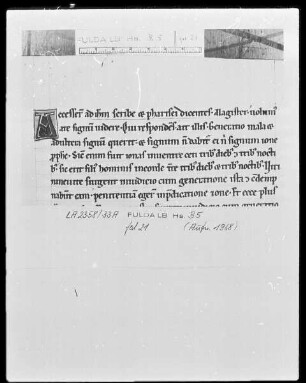 FULDA LB Hs. B5 fol 21
Accesserunt ad ihm scribe & pharisei dicentes. Magister uolum
a te signum uidere. Qui respondens ait illis. Generatio mala &
adultera signum querit. & signum n dabit ei n signum ione
pphe. Sic enim fuit ionas inuentre ceti trib dieb & trib noctib
sic erit fili hominis incorde tre trib dieb & trib noctib. Uiri
niniuite surgent iniudicio cum generatione ista & cdemp
nabunt eam. penitentiam egert inpdicatione ione. Et ecce plus
cum generatio
LA 2358/33A FULDA LB Hs. B5
fol 21 (Aufn. 1968)